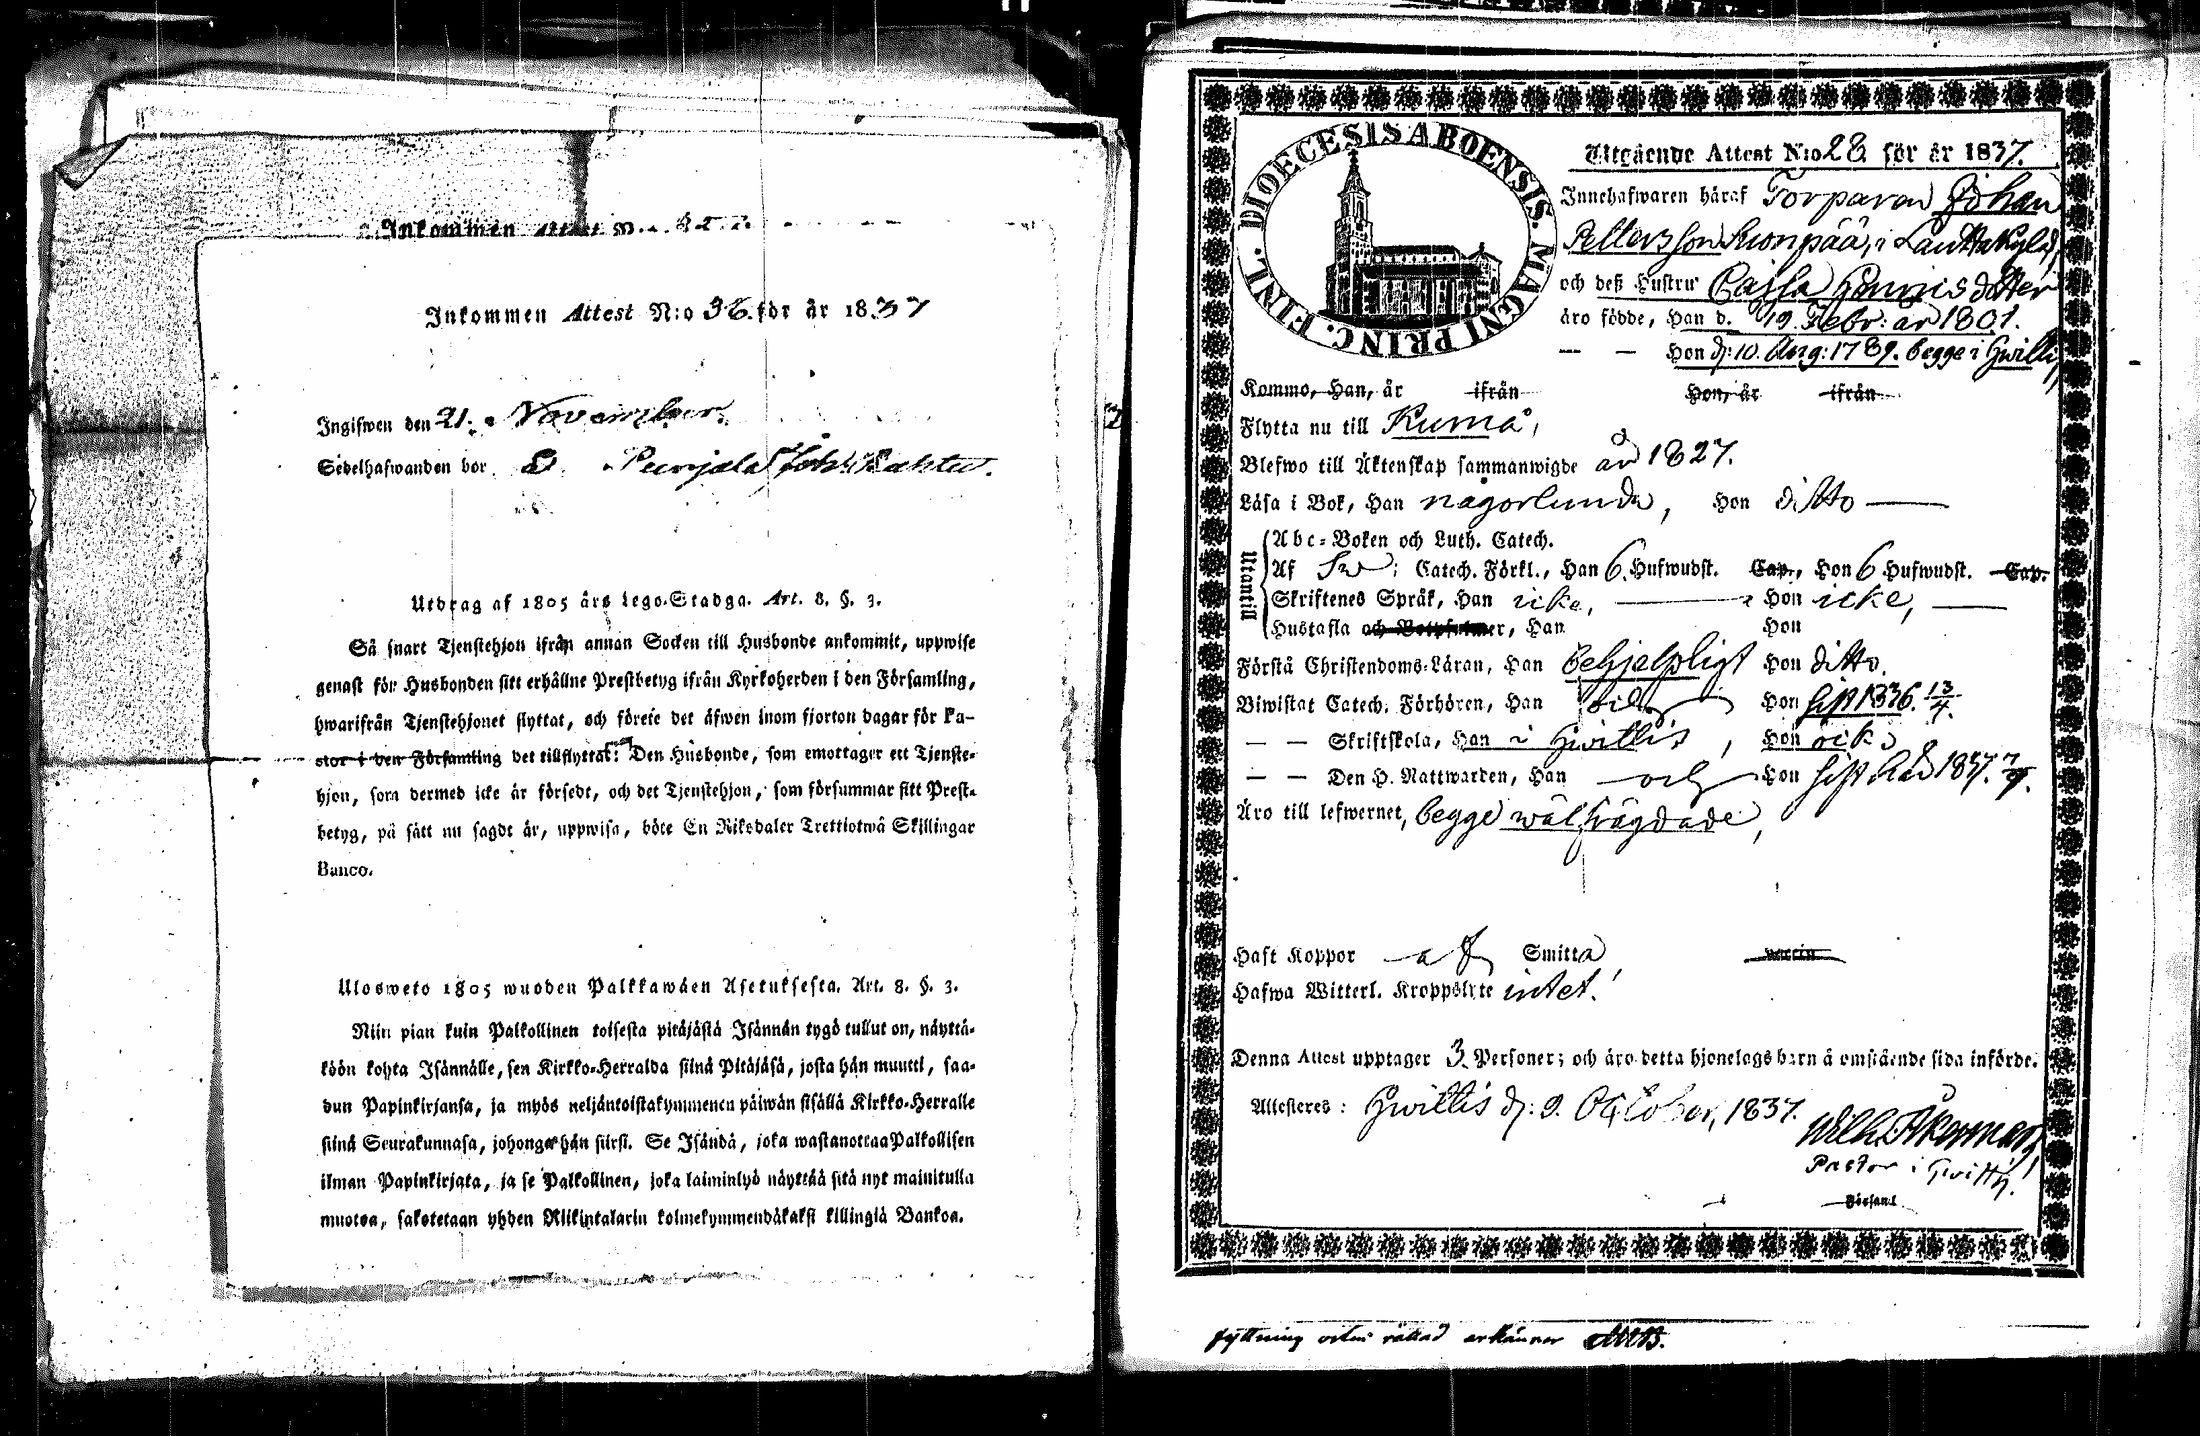 Inkommen Attest N:o
Inkommen Attest N:o 36. för år 1837
Ingifwen den 21. November.
Sedelhafwanden bor
Utdrag af 1805 års Lego-Stadga. Art. 8. §. 3.
Så snart Tjenstehjon ifrån annan Socken till Husbonde ankommit, uppwise
genast för Husbonden sitt erhållne Prestbetyg ifrån Kyrkoherden i den Församling,
hwarifrån Tjenstehjonet flyttat, och föreie det äfwen inom fjorton dagar för Pa-
stor i den Församling det tillflyttat. Den Husbonde, som emottager ett Tjenste-
hjon, som dermed icke är försedt, och det Tjenstehjon, som försummar sitt Prest-
betyg, på sätt nu sagdt är, uppwisa, böte En Riksdaler Trettiotwå Skillingar
Banco.
Ulosweto 1805 wuoden Palkkawäen Asetuksesta. Art. 8. §. 3.
Niin pian kuin Palkollinen toisesta pitäjästä Isännän tygö tullut on, näyttä-
köön kohta Isännälle, sen Kirkko-Herralda siinä Pitäjäsä, josta hän muutti, saa-
dun Papinkirjansa, ja myös neljäntoistakymmenen päiwän sisällä Kirkko-Herralle
siinä Seurakunnasa, johonga hän siirsi. Se Isändä, joka wastanottaa Palkollisen
ilman Papinkirjata, ja se Palkollinen, joka laiminlyö näyttää sitä nyt mainitulla
muotoa, sakotetaan yhden Riikintalarin kolmekymmendäkaksi killingiä Bankoa.
DIOECESIS ABOENSIS. MAGNI PRINC. FINL.
Utgående Attest N:o 28 för år 1837.
Innehafwaren häraf Torparen Johan
Pettersson i Lauttakylä,
och deß Hustru Caisa Henricsdotter
äro födde, Han d. 19. Febr: år 1801.
— — Hon d: 10. Aug: 1789. begge i Hwittis,
Komme, Han, år ifrån Hon, år ifrån
Flytta nu till Kumå,
Blefwo till Äktenskap sammanwigde år 1827.
Läsa i Bok, Han någorlunda, Hon ditto —
Utantill
Abc-Boken och Luth. Catech.
Af Sw: Catech. Förkl., Han 6. Hufwudst. Cap., Hon 6 Hufwudst. Cap.
Skriftenes Språk, Han icke, — Hon icke, —
Hustafla och Botpsalmer, Han Hon
Förstå Christendoms-Läran, Han behjelpligt Hon ditto.
Biwistat Catech. Förhören, Han och Hon sist 1836. 13/4.
— — Skriftskola, Han i Hwittis, Hon ock
— — Den H. Nattwarden, Han — och — Hon sist 1837.
Äro till lefwernet, begge wälfrägdade,
Haft Koppor — af Smitta warin
Hafwa Witterl. Kroppslyte intet.
Denna Attest upptager 3. Personer; och äro detta hjonelags barn å omstående sida införde.
Attesteres: Hwittis d: 9. October, 1837.
Wilh. Åkerman,
Pastor i Hwittis.
Församl.
flyttning orten rättad erkänner